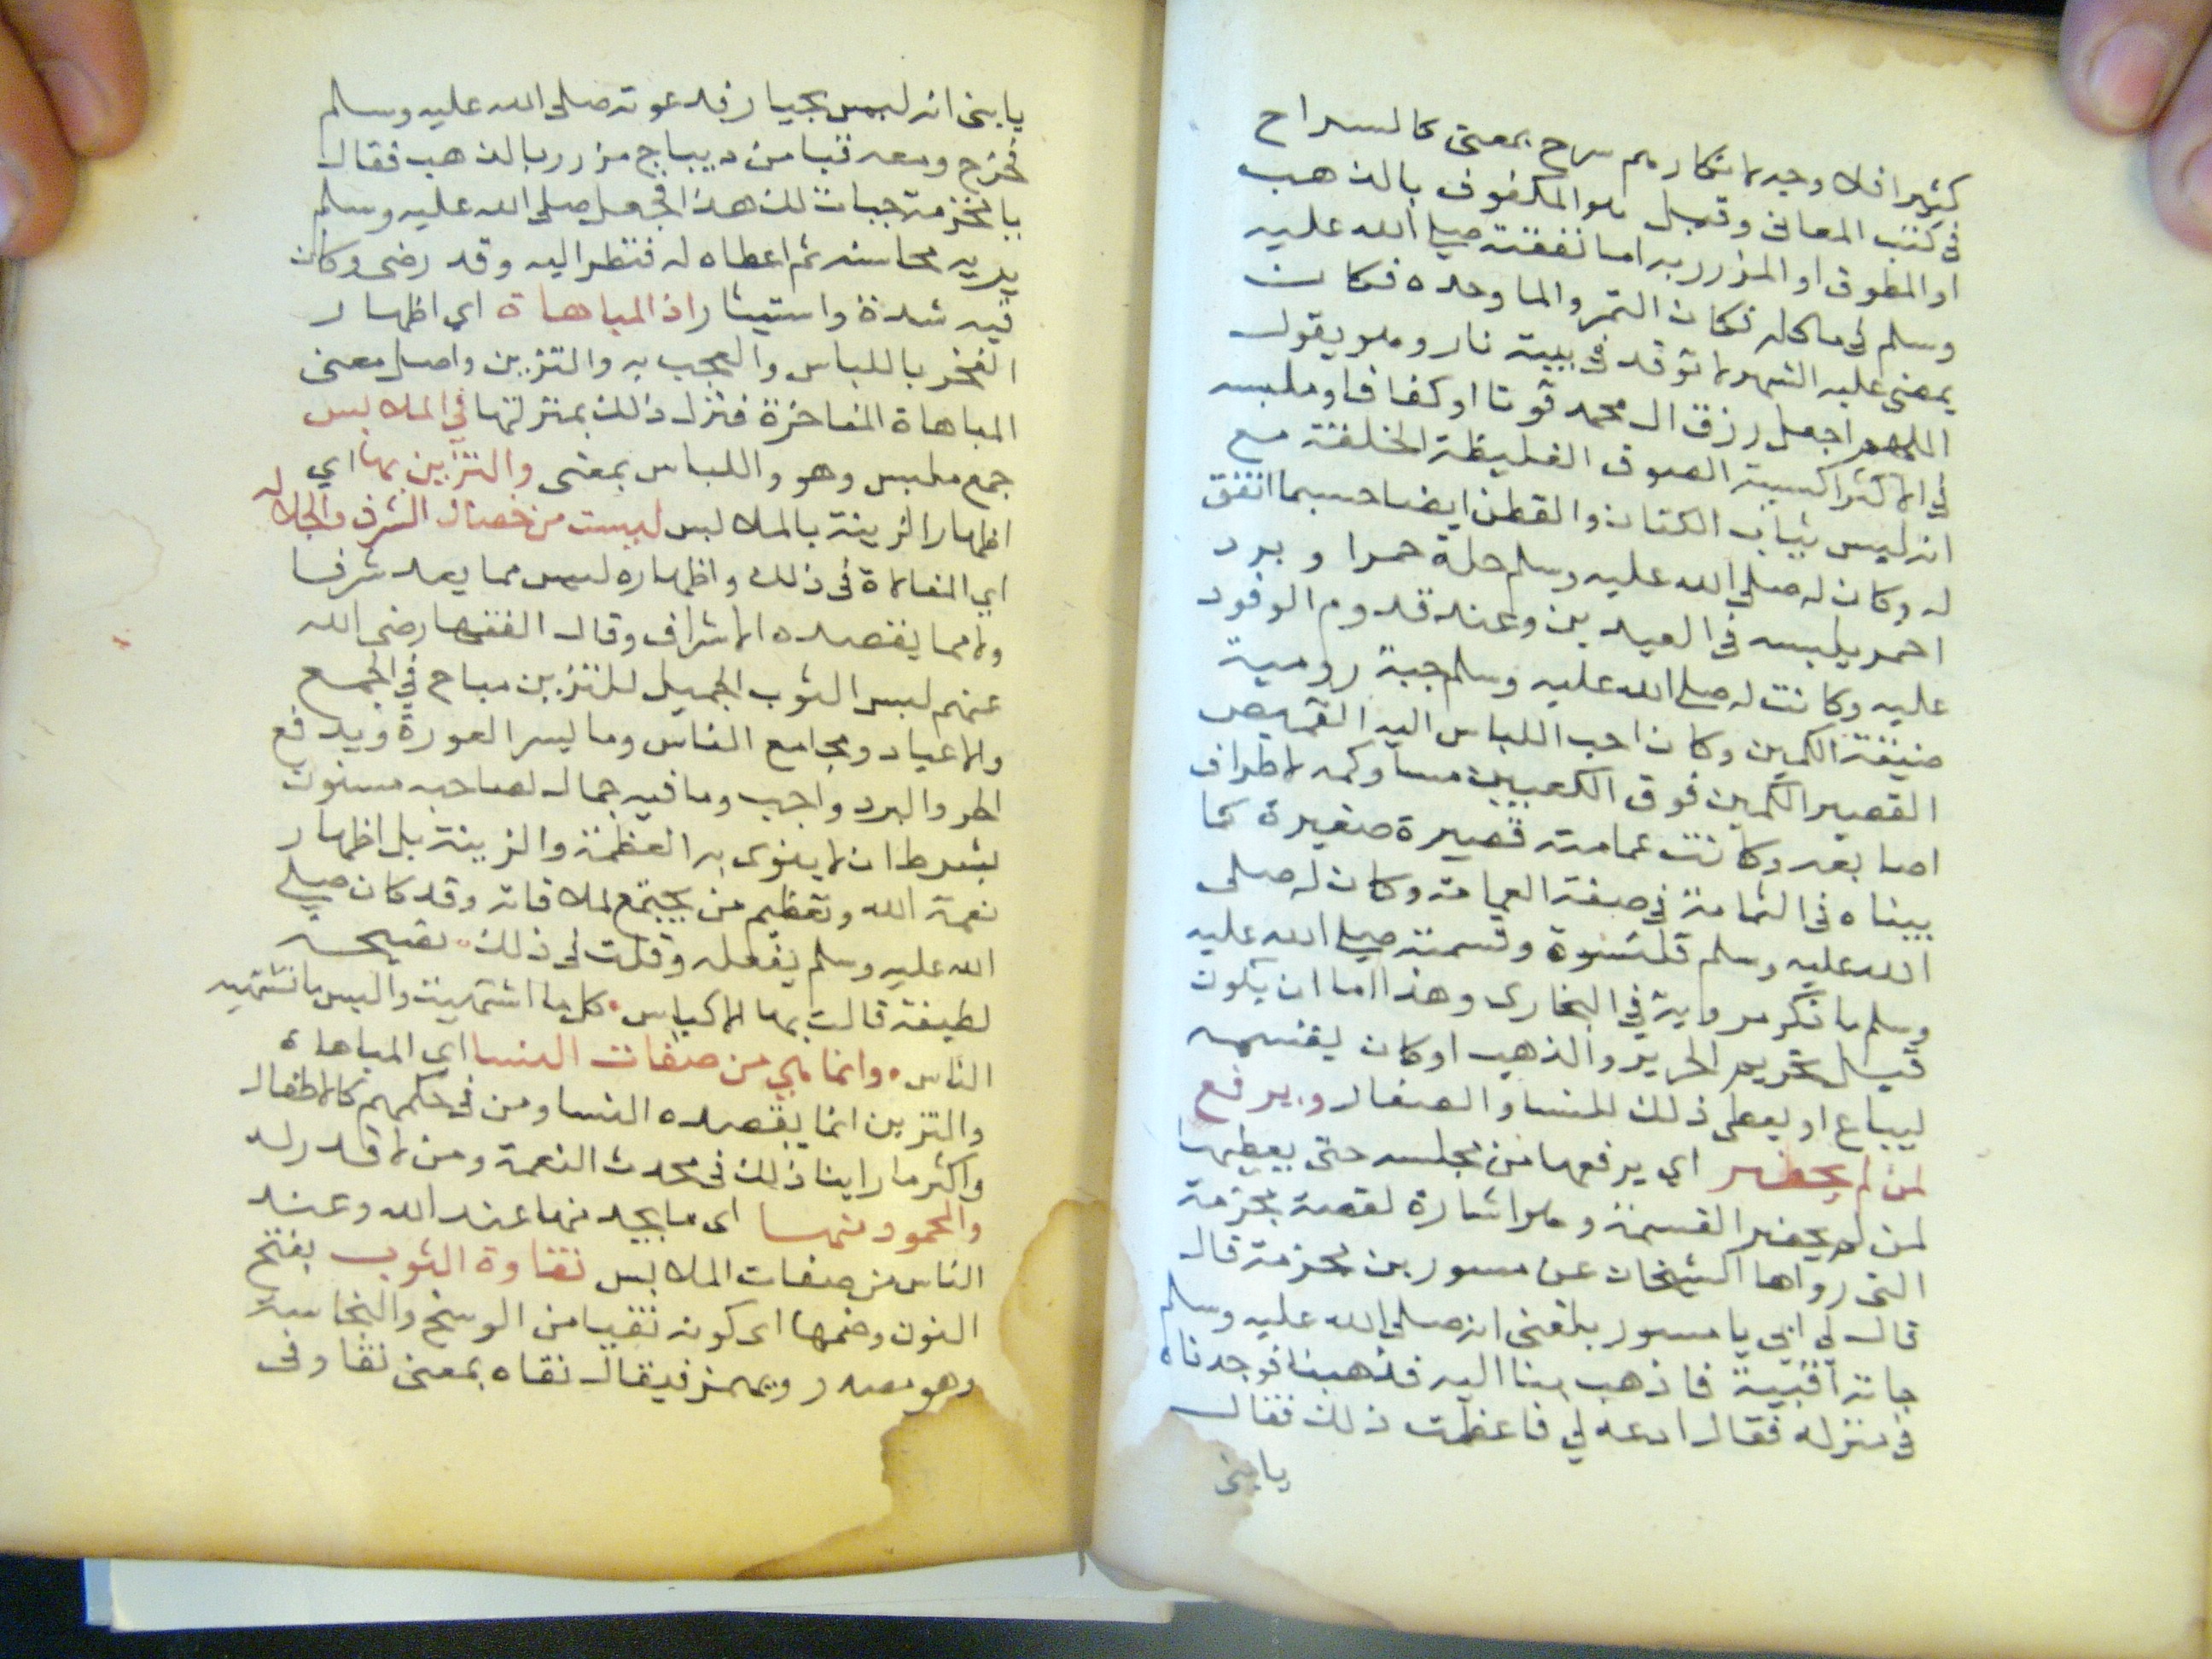 كثيرا فلا وجه لانكارهم سرح بمعنى كالسراح
في كتب المعاني وقيل هو المكفوف بالذهب
او المطوق او المزرر به اما نفقته صلى الله عليه
وسلم في ماكله فكان التمر والما وحده فكان
يمضي عليه الشهر لا توقد في بيته نار وهو يقول
اللهم اجعل رزق ال محمد قوتا او كفافا وملبسه
في الاكثر اكسية الصوف الغليظة الخلقة مع
انه لبس ثياب الكتان والقطن ايضا حسبما اتفق
له وكان له صلى الله عليه وسلم حلة حمرا وبرد
احمر يلبسه في العيدين وعند قدوم الوفود
عليه وكانت له صلى الله عليه وسلم جبة رومية
ضيقة الكمين وكان احب اللباس اليه القميص
القصير الكمين فوق الكعبين مساو كمه لاطراف
اصابعه وكانت عمامته قصيرة صغيرة كما
بيناه في الثمامة في صفة العمامة وكان له صلى
الله عليه وسلم قلنسوة وقسمته صلى الله عليه
وسلم ما ذكر مروية في البخارى وهذا اما ان يكون
قبل تحريم الحرير والذهب او كان يقسمه
ليباع او يعطى ذلك للنسا والصغار ويرفع
لمن لم يحضر اي يرفعها من مجلسه حتى يعطيها
لمن لم يحضر القسمة وهو اشارة لقصة مخرمة
التى رواها الشيخان عن مسور بن مخرمة قال
قال لي ابي يا مسور بلغني انه صلى الله عليه وسلم
جاته اقبية فاذهب بنا اليه فذهبنا فوجدناه
في منزله فقال ادعه لي فاعظمت ذلك فقال
يابنى
يابنى انه ليس بجبار فدعوته صلى الله عليه وسلم
فخرج ومعه قبا من ديباج مزرر بالذهب فقال
يا مخرمة خبات لك هذا فجعل صلى الله عليه وسلم
يريه محاسنه ثم اعطاه له فنظر اليه وقد رضى وكان
فيه شدة واستيثار اذ المباهاة اي اظهار
الفخر باللباس والعجب به والتزين واصل معنى
المباهاة المفاخرة فنزل ذلك بمنزلتها في الملابس
جمع ملبس وهو واللباس بمعنى والتزين بها اي
اظهار الزينة بالملابس ليست من خصال الشرف والجلاله
اي المغالاة في ذلك واظهاره ليس مما يعد شرفا
ولا مما يقصده الاشراف وقال الفقها رضى الله
عنهم لبس الثوب الجميل للتزين مباح في الجمع
والاعياد ومجامع الناس وما يستر العورة ويدفع
الحر والبرد واجب وما فيه جمال لصاحبه مسنون
بشرط ان لا ينوى به العظمة والزينة بل اظهار
نعمة الله وتعظيم من يجتمع لملاقاته وقد كان صلى
الله عليه وسلم يفعله وقلت في ذلك نصيحة
لطيفة قالت بها الاكياس كل ما اشتهيت والبس ما تشتهيه
الناس وانما هي من صفات النسا اي المباهاة
والتزين انما يقصده النسا ومن في حكمهم كالاطفال
واكثر ما راينا ذلك في محدث النعمة ومن لا قدر له
والمحمود منها اى ما يحمد منها عند الله وعند
الناس من صفات الملابس نقاوة الثوب بفتح
النون وضمها اى كونه نقيا من الوسخ والنجاسة
وهو مصدر ويهمز فيقال نقاه بمعنى نقا وفى